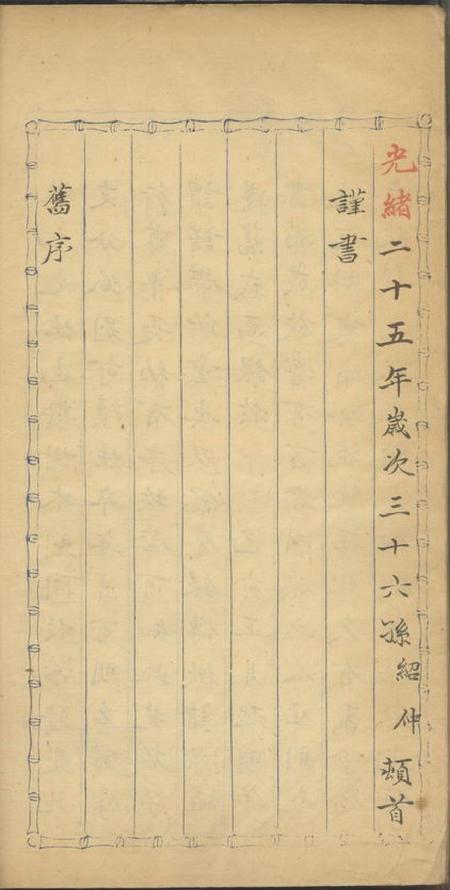 光緒二十五年歲次三十六孫紹仲頓首
謹書
舊序